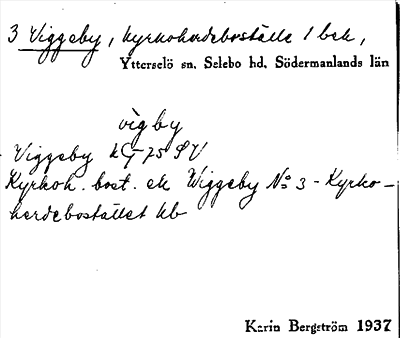 3 Viggeby, kyrkoherdeboställe 1 bek,
Ytterselö sn, Selebo hd, Södermanlands län
vìgby
Viggeby kG-75 SV
Kyrkoh. bost. ek Wiggeby No 3 - Kyrko-
herdebostället kb
Karin Bergström 1937